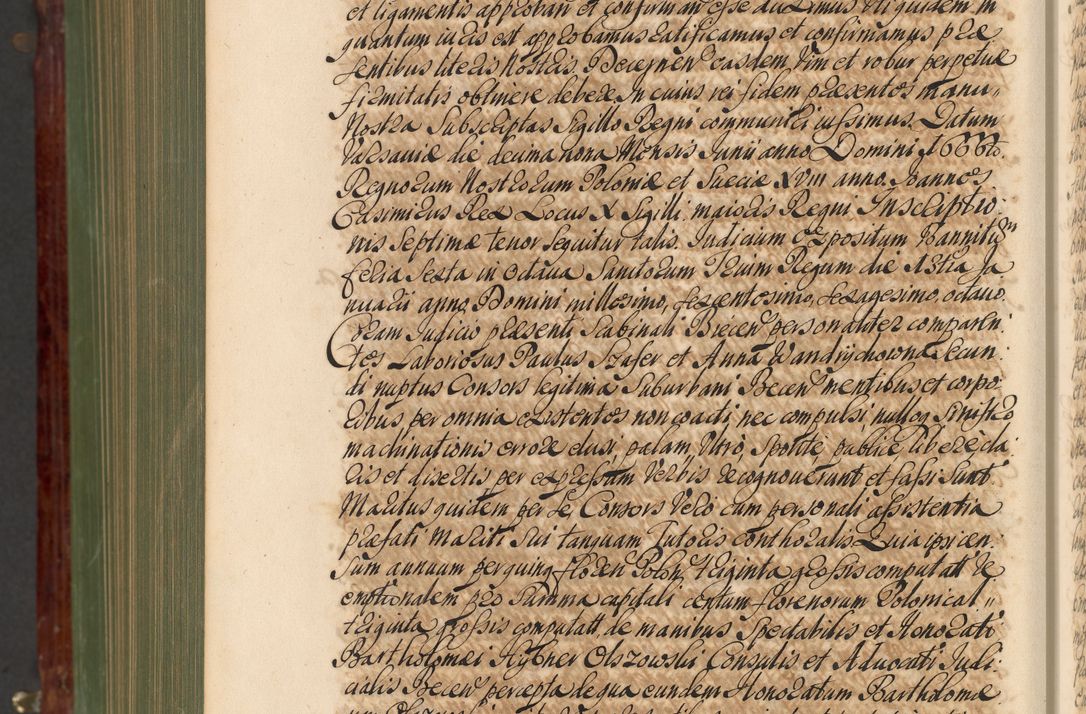 et ligamentis approbari et confirmari esse duximus uti quidem in
quantum iuris est approbamus ratificamus et confirmamus præ
sentibus literis Nostris. Decernen̄ easdem Vim et robur perpetuæ
firmitatis obtinere debere. In cuius rei fidem præsentes manu„
Nostra Subscriptas Sigillo Regni communiri iussimus. Datum
Varsaviæ die decima nona Mensis Junii anno Domini
Regnorum Nostrorum Poloniæ et Sueciæ XVIII anno. Joannes
Casimirus Rex Locus X Sigilli maioris Regni Inscriptio
nis Septimæ tenor sequitur talis. Judicium expositum bannitum
feria sexta in octava Sanctorum Trium Regum die 13tia Ja
nuarii anno Domini millesimo, sexcentesimo, sexagesimo, octavo.
Coram Judicio præsenti Scabinali Biecen̄ personaliter comparen
tes Laboriosus Paulus Szafer et Anna Wandrychowna Secun
di nuptus Consors legitima Suburbani Becen̄ mentibus et corpo
ribus, per omnia existentes non coacti, nec compulsi nullog sinistro
machinationis errore elusi, palam, Ultrò, Sponte, publicè liberè cla
ris et disertis per expressam Verbis recognoverunt et fassi sunt.
Maritus quidem per se, Consors Vero cum personali assistentia
præfati Mariti Sui tanquam Tutoris conthoralis. Quia ipsi cen
sum annuum per quinq florēn Polon̄, triginta grossis computat̄ re
emptionalem pro Summa capitali centum florenorum Polonical„
triginta grossis computat̄, de manibus Spectabilis et Honorati
Bartholomæi Hybner Olszowski Consulis et Advocati Judi
cialis Becen̄ percepta de qua eundem Honoratum Bartholomæ